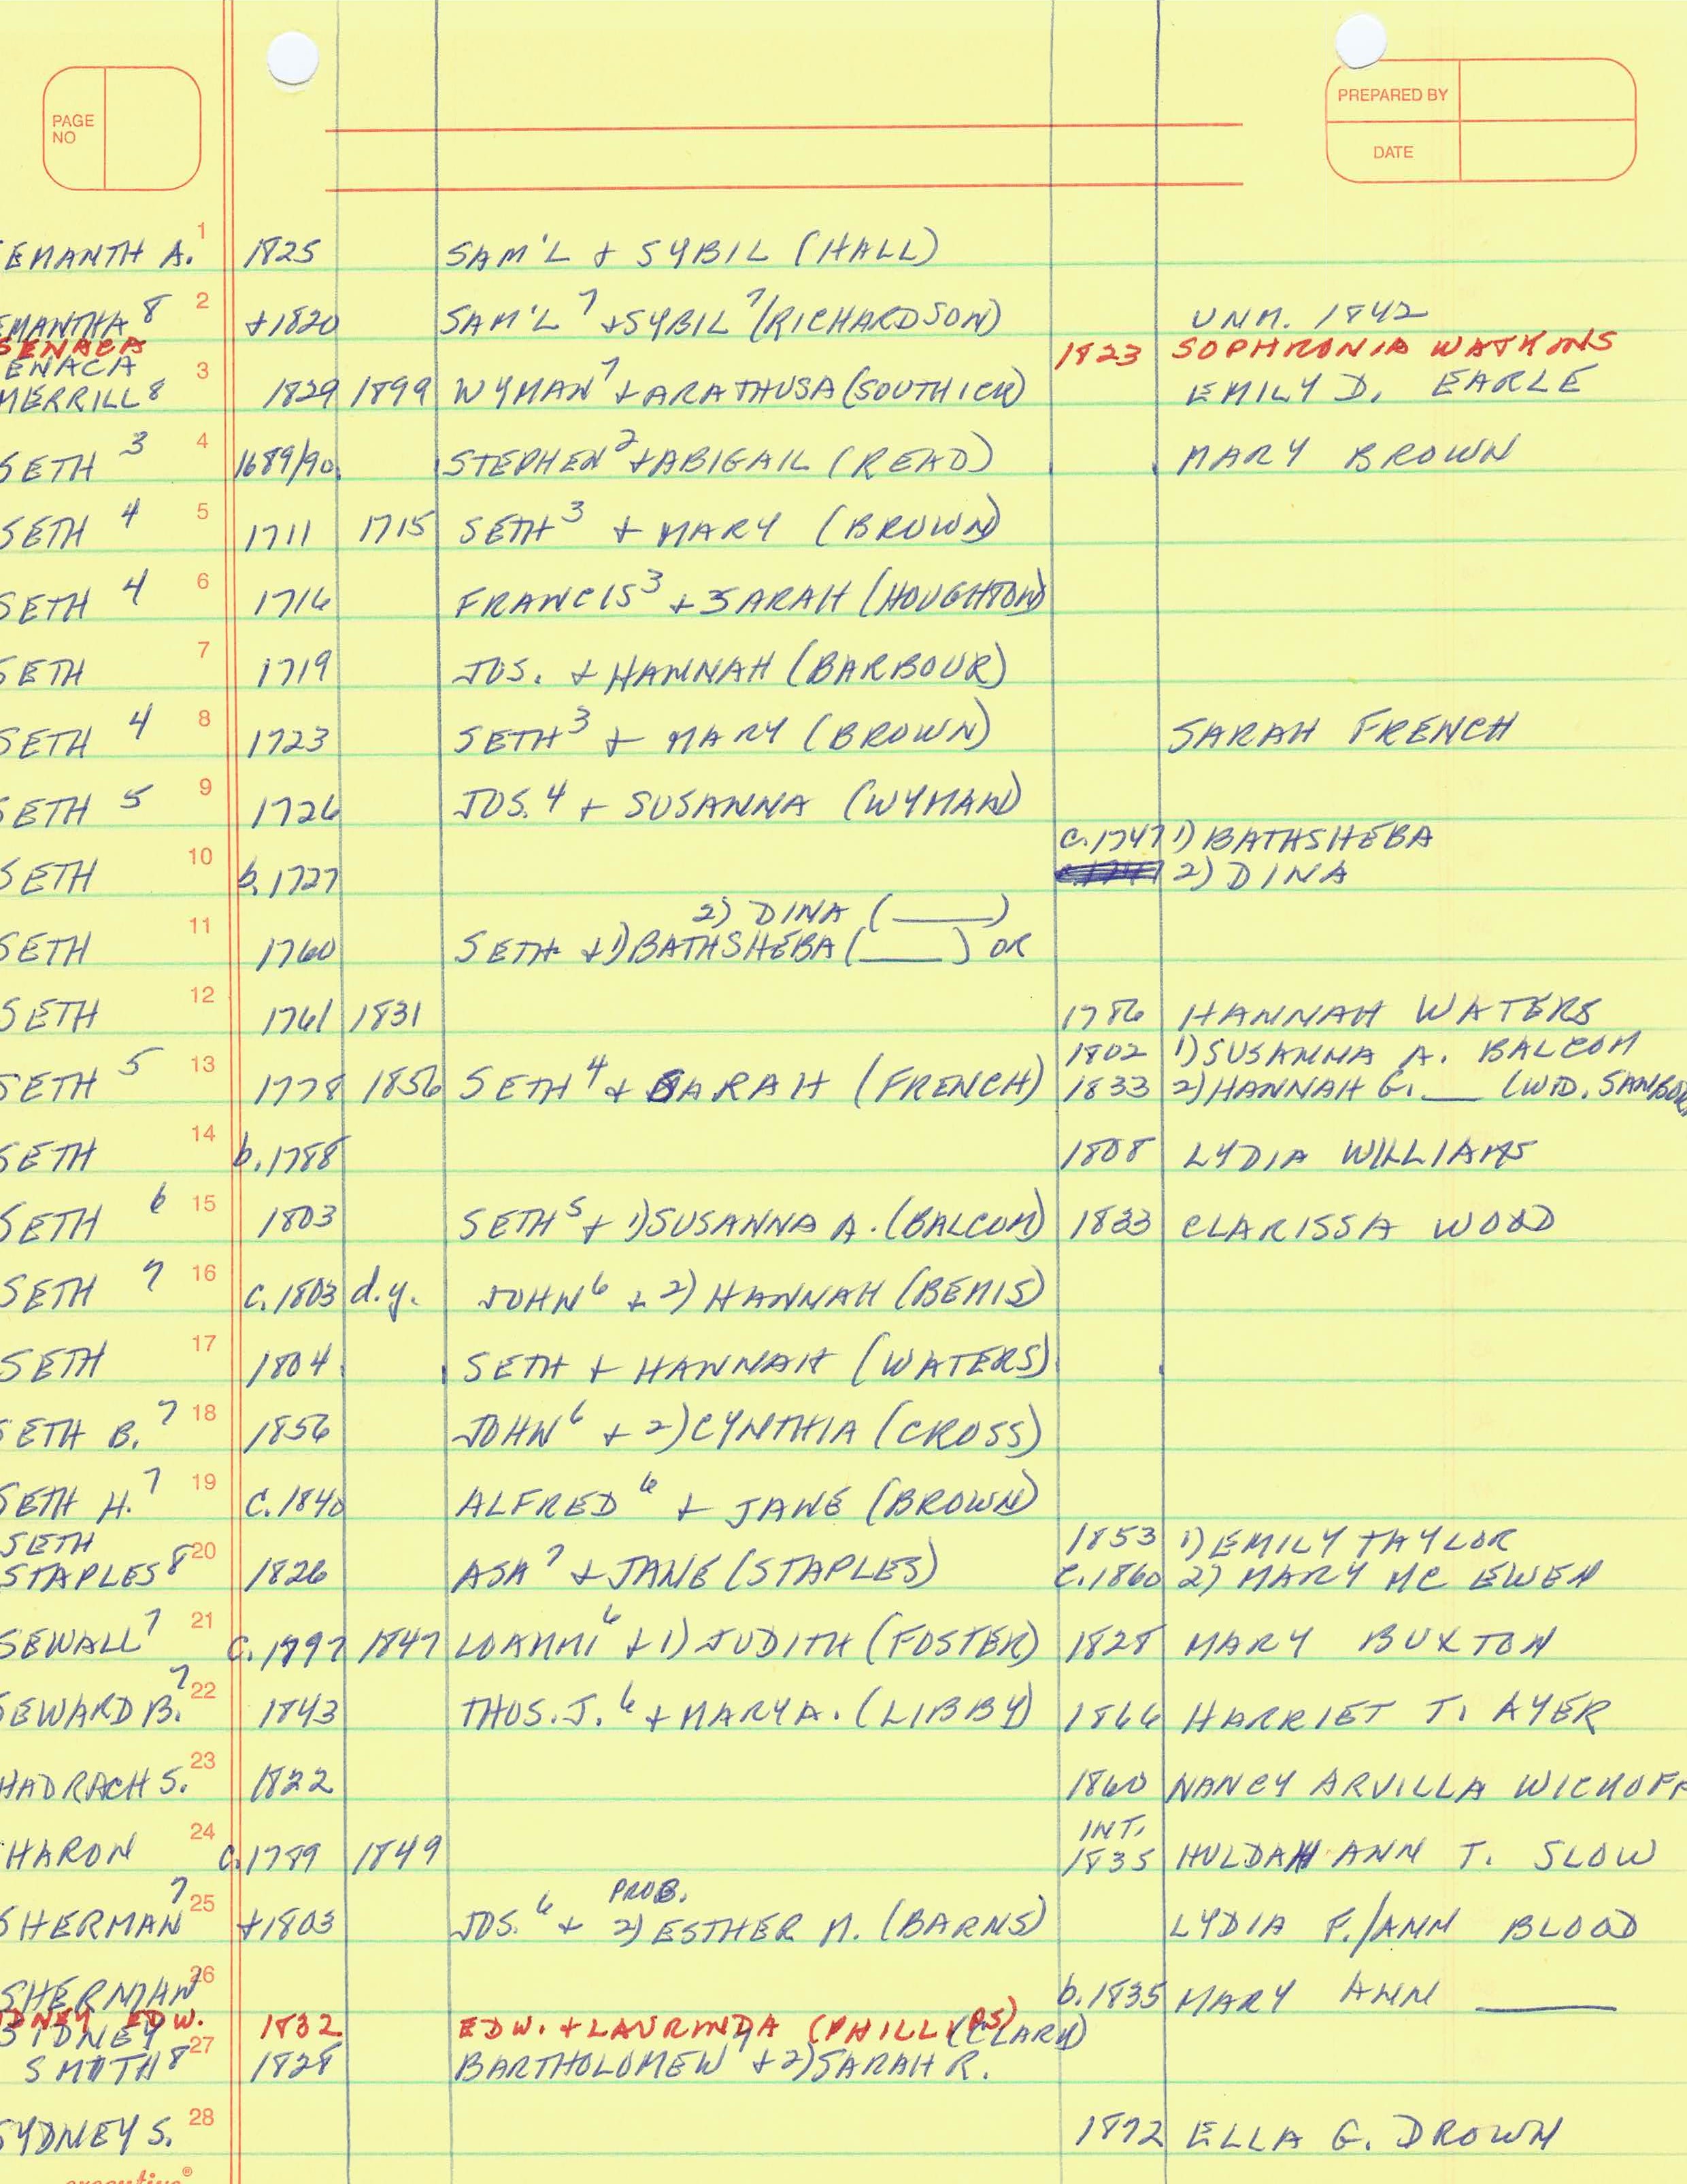 PAGE NO
PREPARED BY
DATE
EMANTH A. 1 1825 SAM'L + SYBIL (HALL)
EMANTHA 8 2 +1820 SAM'L 7 + SYBIL 7 (RICHARDSON) UNM. 1842
SENACA 1823 SOPHRONIA WATKINS
ENACA
MERRILL 8 3 1829 1899 WYMAN 7 + ARATHUSA (SOUTHICK) EMILY D. EARLE
SETH 3 4 1689/90 STEPHEN 2 + ABIGAIL (READ) MARY BROWN
SETH 4 5 1711 1715 SETH 3 + MARY (BROWN)
SETH 4 6 1716 FRANCIS 3 + SARAH (HOUGHTON)
SETH 7 1719 JOS. + HANNAH (BARBOUR)
SETH 4 8 1723 SETH 3 + MARY (BROWN) SARAH FRENCH
SETH 5 9 1726 JOS. 4 + SUSANNA (WYMAN)
c. 1747 1) BATHSHEBA
SETH 10 b. 1727 2) DINA
2) DINA (____)
SETH 11 1760 SETH + 1) BATHSHEBA (____) OR
SETH 12 1761 1831 1786 HANNAH WATERS
1802 1) SUSANNA A. BALCOM
SETH 5 13 1778 1856 SETH 4 + SARAH (FRENCH) 1833 2) HANNAH G. ___ (WID. SANBOR
SETH 14 b. 1788 1808 LYDIA WILLIAMS
SETH 6 15 1803 SETH 5 + 1) SUSANNA A. (BALCOM) 1833 CLARISSA WOOD
SETH 7 16 c. 1803 d.y. JOHN 6 + 2) HANNAH (BEMIS)
SETH 17 1804 SETH + HANNAH (WATERS)
SETH B. 7 18 1856 JOHN 6 + 2) CYNTHIA (CROSS)
SETH H. 7 19 c. 1840 ALFRED 6 + JANE (BROWN)
SETH 1853 1) EMILY TAYLOR
STAPLES 8 20 1826 ASA 7 + JANE (STAPLES) c. 1860 2) MARY MC EWEN
SEWALL 7 21 c. 1797 1847 LOAMMI 6 + 1) JUDITH (FOSTER) 1828 MARY BUXTON
SEWARD B. 7 22 1843 THOS. J. 6 + MARY A. (LIBBY) 1866 HARRIET T. AYER
HADRACH S. 23 1822 1860 NANCY ARVILLA WICKOFF
INT.
HARON 24 c. 1789 1849 1835 HULDAH ANN T. SLOW
PROB.
SHERMAN 7 25 +1803 JOS. 6 + 2) ESTHER M. (BARNS) LYDIA F./ANN BLOOD
SHERMAN 26 b. 1835 MARY ANN ____
DNEY EDW. 1832 EDW. + LAURINDA (PHILLIPS)
SIDNEY (CLARK)
SMITH 8 27 1828 BARTHOLOMEW 7 + 2) SARAH R.
SYDNEY S. 28 1872 ELLA G. DROWN
executive®